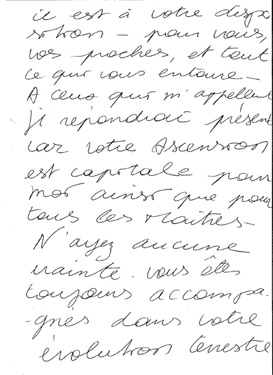 il est à votre dispo
sition - pour vous,
vos proches, et tout
ce qui vous entoure -
A ceux qui m'appellent
je répondrai présent
car votre Ascension
est capitale pour
moi ainsi que pour
tous les Maîtres -
N'ayez aucune
crainte. vous êtes
toujours accompa-
-gnés dans votre
évolution terrestre